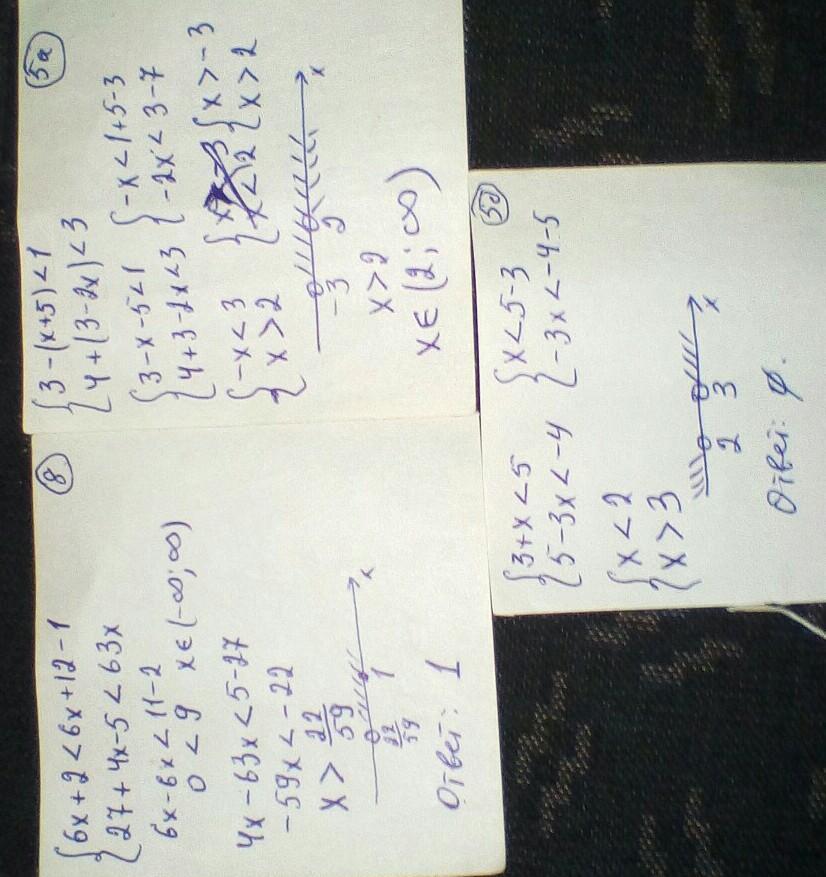 5а
{ 3-(x+5)<1
{ 4+(3-2x)<3
{ 3-x-5<1 { -x<1+5-3
{ 4+3-2x<3 { -2x<3-7
{ -x<3 { x>-3
{ x>2 { x<2 { x>2
-3 2 x
x>2
x∈(2;∞)
8
{ 6x+2<6x+12-1
{ 27+4x-5<63x
6x-6x<11-2
0<9 x∈(-∞;∞)
4x-63x<5-27
-59x<-22
x> 22/59
22/59 1 x
Ответ: 1
5д
{ 3+x<5 { x<5-3
{ 5-3x<-4 { -3x<-4-5
{ x<2
{ x>3
2 3 x
Ответ: ∅.